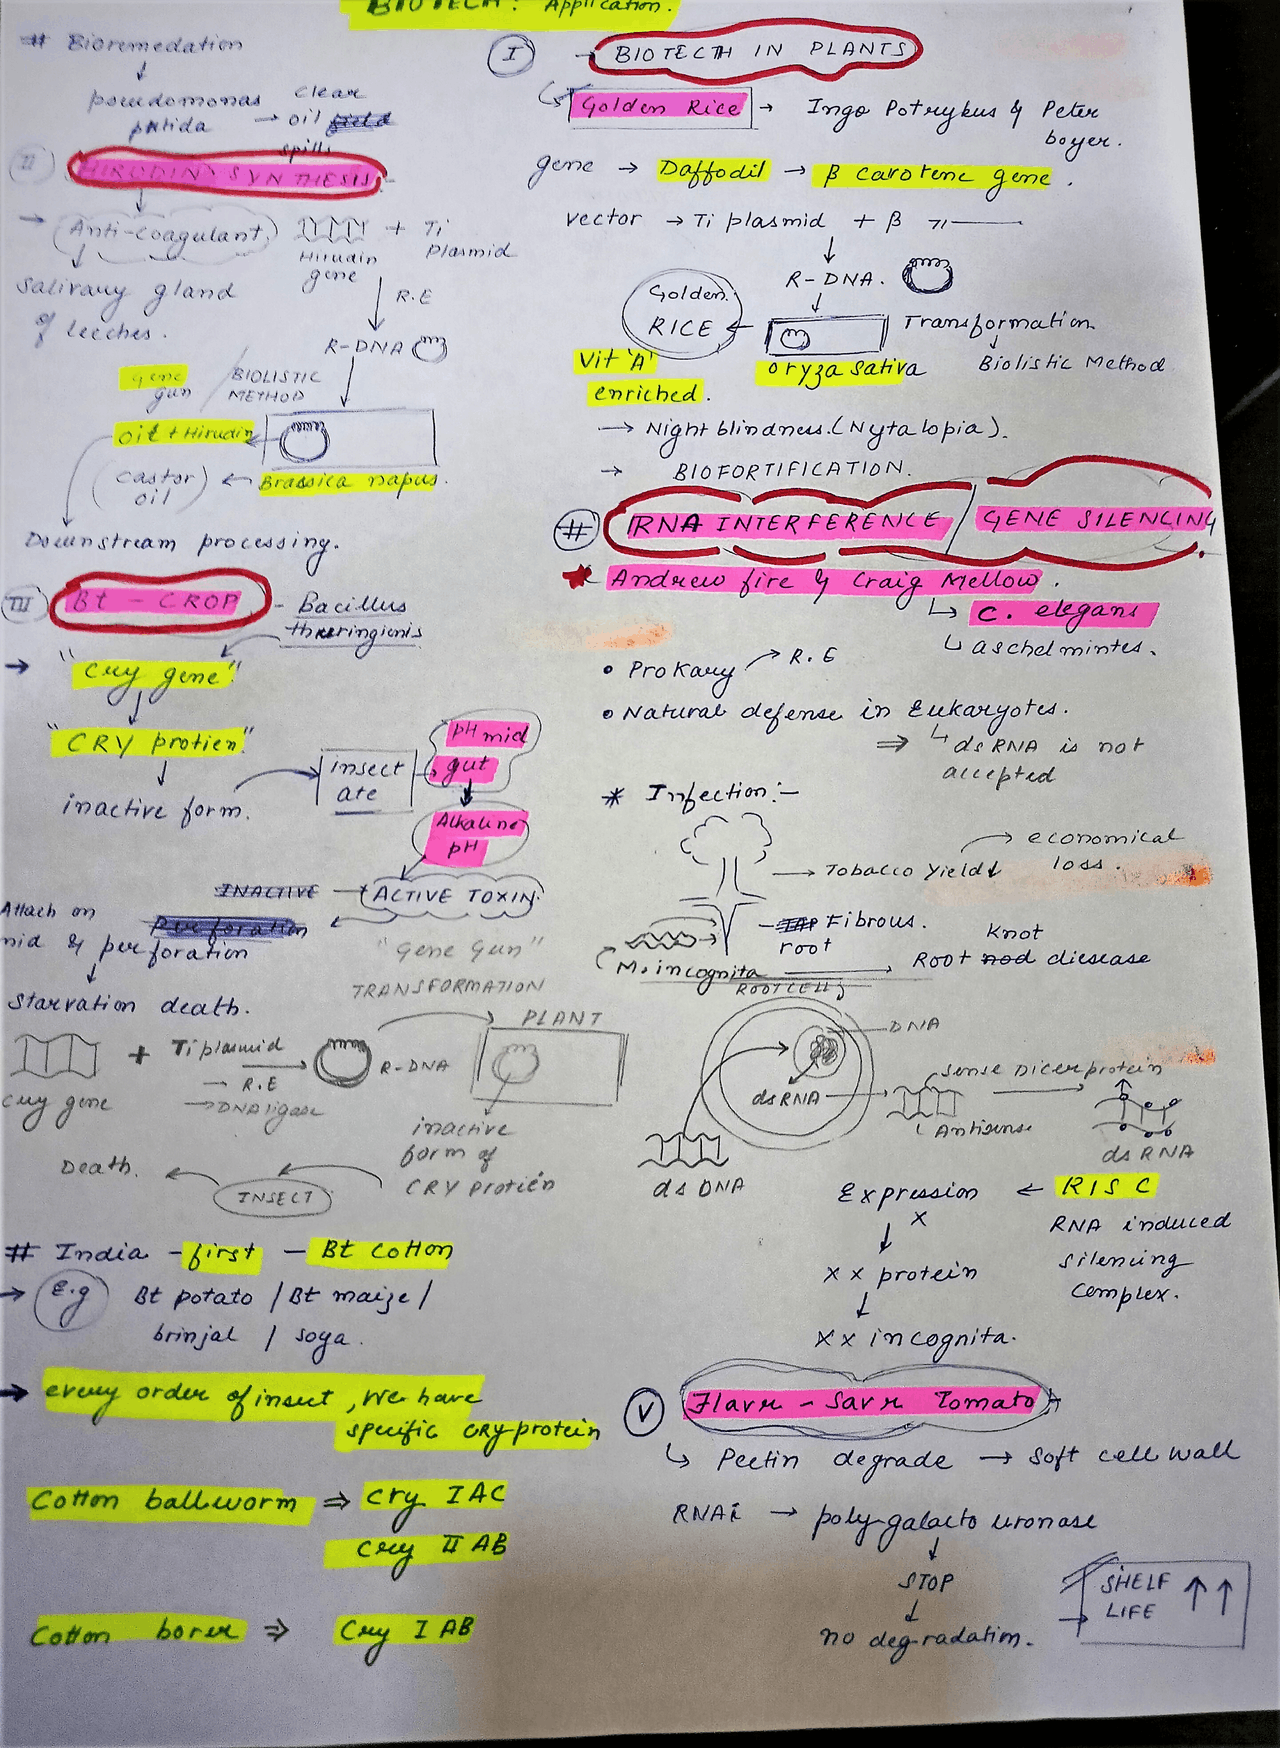 BIOTECH: Application.
# Bioremedation
pseudomonas putida → clear oil spills
II HIRUDIN SYNTHESIS
→ Anti-coagulant
Salivary gland
of leeches.
Hirudin gene + Ti Plasmid
R.E
R-DNA
gene gun / BIOLISTIC METHOD
oil + Hirudin
(castor oil) ← Brassica napus.
Downstream processing.
III Bt - CROP - Bacillus
thuringienis
→ "Cry gene"
"CRY protien"
inactive form.
insect
ate
pH mid
gut
Alkaline
pH
INACTIVE → ACTIVE TOXIN.
perforation
Attach on
mid & perforation
Starvation death.
"Gene Gun"
TRANSFORMATION
PLANT
cry gene + Ti plasmid
→ R.E
→ DNA ligase
R-DNA
inactive
form of
CRY Protién
INSECT
Death.
# India - first - Bt cotton
→ E.g Bt potato / Bt maize /
brinjal / soya.
→ every order of insect, we have
specific CRY protein
Cotton ballworm ⇒ Cry IAC
Cry II AB
Cotton borer ⇒ Cry I AB
I → BIOTECH IN PLANTS
Golden Rice → Ingo Potrykus & Peter
boyer.
gene → Daffodil → β carotene gene.
vector → Ti plasmid + β
R-DNA.
Golden
RICE
Transformation
Biolistic Method
oryza sativa
Vit 'A'
enriched.
→ Night blindness. (Nytalopia).
→ BIOFORTIFICATION.
# RNA INTERFERENCE / GENE SILENCING
Andrew fire & Craig Mellow.
↳ C. elegans
↳ aschelmintes.
• Prokary → R.E
• Natural defense in Eukaryotes.
⇒ ↳ dsRNA is not
accepted
* Infection:-
→ Tobacco yield↓ → economical
loss.
Fibrous
root
M. incognita → Root nod Knot diesease
ROOT CELL
DNA
dsRNA
Sense
Antisense
Dicer protein
dsRNA
dsDNA
Expression ← RISC
x
RNA induced
silencing
complex.
x x protein
x x incognita.
V Flavr - Savr Tomato
↳ Pectin degrade → Soft cell wall
RNAi → poly-galacto uronase
STOP
no degradation.
SHELF
LIFE ↑↑